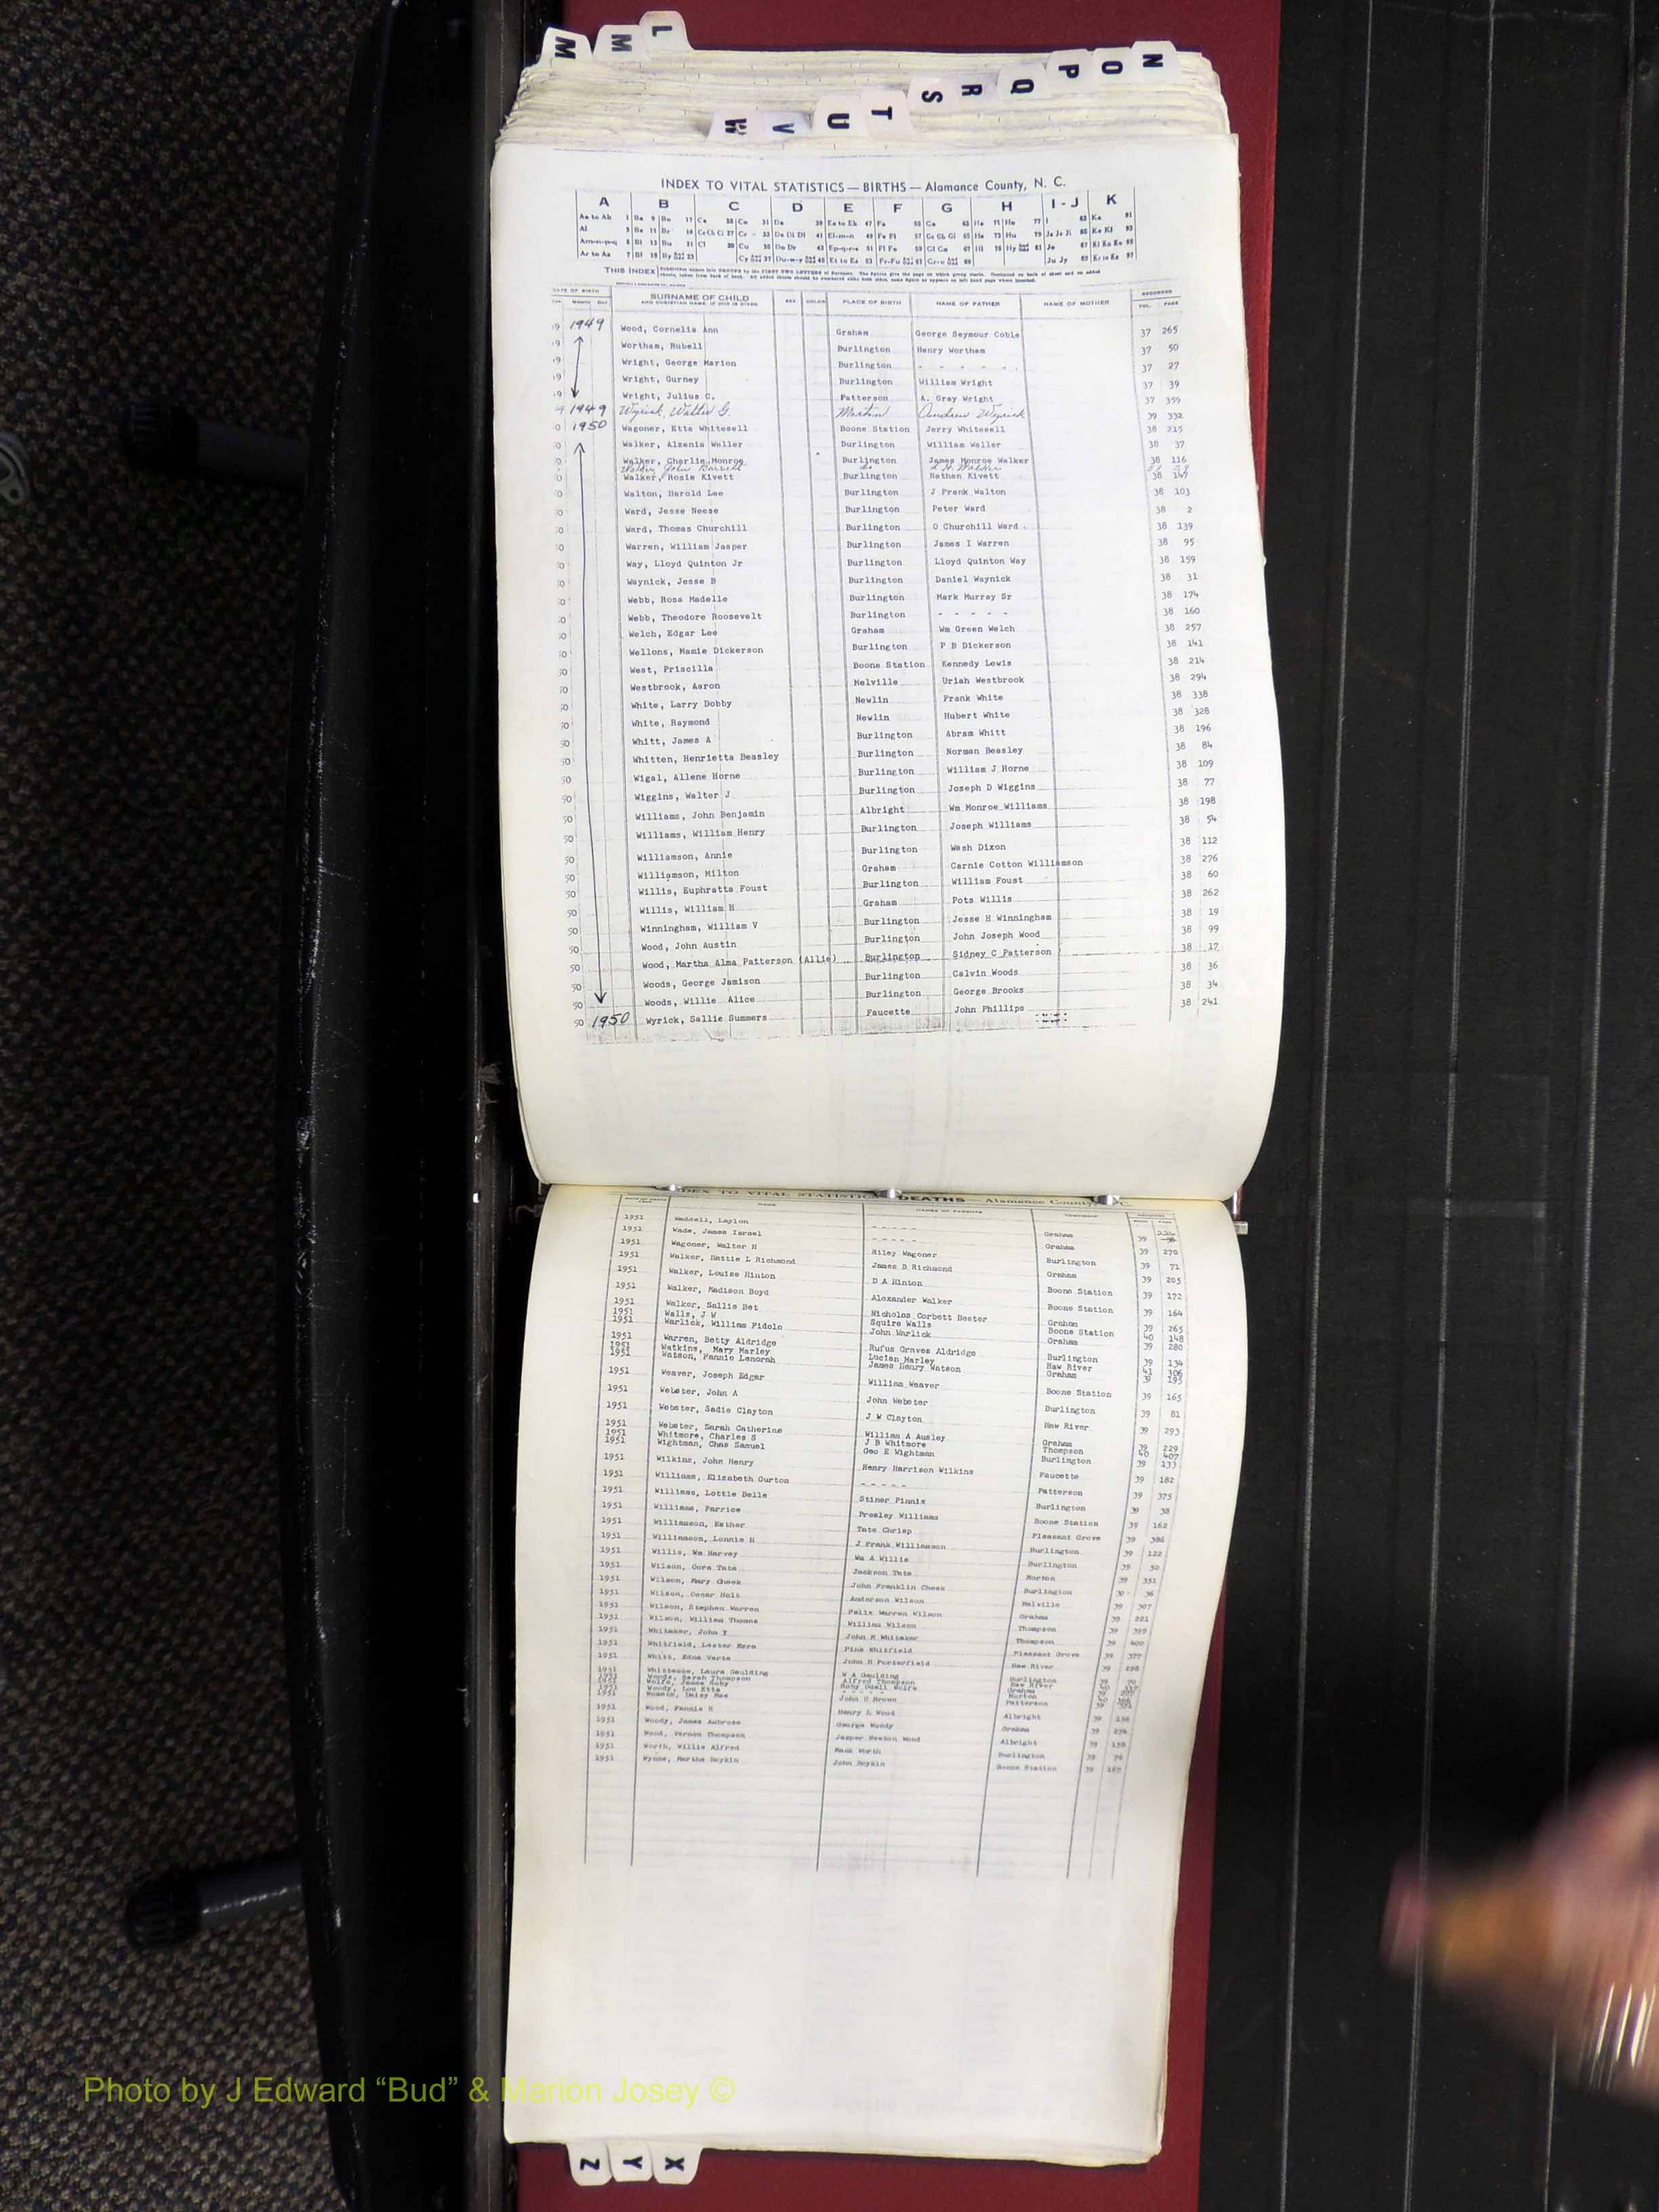 M M L
N O P Q R S T U V W
INDEX TO VITAL STATISTICS — BIRTHS — Alamance County, N. C.
A B C D E F G H I-J K
THIS INDEX
DATE OF BIRTH SURNAME OF CHILD SEX COLOR PLACE OF BIRTH NAME OF FATHER NAME OF MOTHER RECORDED
MONTH DAY AND CHRISTIAN NAME, IF ONE IS GIVEN VOL. PAGE
9 1949 Wood, Cornelia Ann Graham George Seymour Coble 37 265
9 Wortham, Rubell Burlington Henry Wortham 37 50
9 Wright, George Marion Burlington - - - - - - 37 27
9 Wright, Gurney Burlington William Wright 37 39
9 Wright, Julius C. Patterson A. Gray Wright 37 359
9 1949 Wyrick, Walter G. Morton Andrew Wyrick 39 332
0 1950 Wagoner, Etta Whitesell Boone Station Jerry Whitesell 38 215
0 Walker, Alzenia Waller Burlington William Waller 38 37
0 Walker, Charlie Monroe Burlington James Monroe Walker 38 116
Walker, John do Walker
0 Walker, Rosie Kivett Burlington Nathan Kivett 38 147
0 Walton, Harold Lee Burlington J Frank Walton 38 103
0 Ward, Jesse Neese Burlington Peter Ward 38 2
0 Ward, Thomas Churchill Burlington O Churchill Ward 38 139
0 Warren, William Jasper Burlington James I Warren 38 95
0 Way, Lloyd Quinton Jr Burlington Lloyd Quinton Way 38 159
0 Waynick, Jesse B Burlington Daniel Waynick 38 31
0 Webb, Rosa Madelle Burlington Mark Murray Sr 38 174
0 Webb, Theodore Roosevelt Burlington - - - - - 38 160
0 Welch, Edgar Lee Graham Wm Green Welch 38 257
0 Wellons, Mamie Dickerson Burlington P B Dickerson 38 141
0 West, Priscilla Boone Station Kennedy Lewis 38 214
0 Westbrook, Aaron Melville Uriah Westbrook 38 294
50 White, Larry Dobby Newlin Frank White 38 338
50 White, Raymond Newlin Hubert White 38 328
50 Whitt, James A Burlington Abram Whitt 38 196
50 Whitten, Henrietta Beasley Burlington Norman Beasley 38 84
50 Wigal, Allene Horne Burlington William J Horne 38 109
50 Wiggins, Walter J Burlington Joseph D Wiggins 38 77
50 Williams, John Benjamin Albright Wm Monroe Williams 38 198
50 Williams, William Henry Burlington Joseph Williams 38 54
50 Williamson, Annie Burlington Wash Dixon 38 112
50 Williamson, Milton Graham Carnie Cotton Williamson 38 276
50 Willis, Euphratta Foust Burlington William Foust 38 60
50 Willis, William H Graham Pots Willis 38 262
50 Winningham, William V Burlington Jesse H Winningham 38 19
50 Wood, John Austin Burlington John Joseph Wood 38 99
50 Wood, Martha Alma Patterson (Allie) Burlington Sidney C Patterson 38 17
50 Woods, George Jamison Burlington Calvin Woods 38 36
50 Woods, Willie Alice Burlington George Brooks 38 34
50 1950 Wyrick, Sallie Summers Faucette John Phillips 38 241
INDEX TO VITAL STATISTICS DEATHS — Alamance County, N. C.
NAME NAMES OF PARENTS TOWNSHIP
1951 Waddell, Layion - - - - - Graham 39
1951 Wade, James Israel - - - - - Graham 39 270
1951 Wagoner, Walter H Riley Wagoner Burlington 39 71
1951 Walker, Hattie L Richmond James D Richmond Graham 39 205
1951 Walker, Louise Hinton D A Hinton Boone Station 39 172
1951 Walker, Madison Boyd Alexander Walker Boone Station 39 164
1951 Walker, Sallie Bet Nicholas Corbett Hester Graham 39 265
1951 Walls, J W Squire Walls Boone Station 40 148
1951 Warlick, William Fidelo John Warlick Graham 39 280
1951 Warren, Betty Aldridge Rufus Graves Aldridge Burlington 39 134
1951 Watkins, Mary Marley Lucian Marley Haw River 41 306
1951 Watson, Fannie Lenorah James Henry Watson Graham 39 195
1951 Weaver, Joseph Edgar William Weaver Boone Station 39 165
1951 Webster, John A John Webster Burlington 39 81
1951 Webster, Sadie Clayton J W Clayton Haw River 39 293
1951 Webster, Sarah Catherine William A Ausley Graham 39 229
1951 Whitmore, Charles S J B Whitmore Thompson 40 407
1951 Wightman, Chas Samuel Geo E Wightman Burlington 39 133
1951 Wilkins, John Henry Henry Harrison Wilkins Faucette 39 182
1951 Williams, Elizabeth Gurton - - - - - Patterson 39 375
1951 Williams, Lottie Belle Stiner Pinnix Burlington 39 38
1951 Williams, Parrice Presley Williams Boone Station 39 162
1951 Williamson, Esther Tate Chrisp Pleasant Grove 39 386
1951 Williamson, Lonnie H J Frank Williamson Burlington 39 122
1951 Willis, Wm Harvey Wm A Willis Burlington 39 50
1951 Wilson, Cora Tate Jackson Tate Morton 39 351
1951 Wilson, Mary Cheek John Franklin Cheek Burlington 39 36
1951 Wilson, Oscar Holt Anderson Wilson Melville 39 307
1951 Wilson, Stephen Warren Felix Warren Wilson Graham 39 221
1951 Wilson, William Thomas William Wilson Thompson 39 399
1951 Whitaker, John Y John M Whitaker Thompson 39 400
1951 Whitfield, Lester Ezra Pink Whitfield Pleasant Grove 39 377
1951 Whitt, Edna Verta John H Porterfield Haw River 39 298
1951 Whittemore, Laura Gaulding W A Gaulding Burlington
1951 Woods, Sarah Thompson Alfred Thompson Haw River
1951 Wolfe, Jesse Roby Roby Odell Wolfe Graham
1951 Woody, Lou Etta - - - - - Morton
1951 Womack, Daisy Mae John O Brown Patterson
1951 Wood, Fannie H Henry L Wood Albright 39 156
1951 Woody, James Ambrose George Woody Graham 39 254
1951 Wood, Vernon Thompson Jasper Newton Wood Albright 39 158
1951 Worth, Willis Alfred Mack Worth Burlington 39 76
1951 Wynne, Martha Boykin John Boykin Boone Station 39 167
Photo by J Edward “Bud” & Marion Josey ©
Z Y X